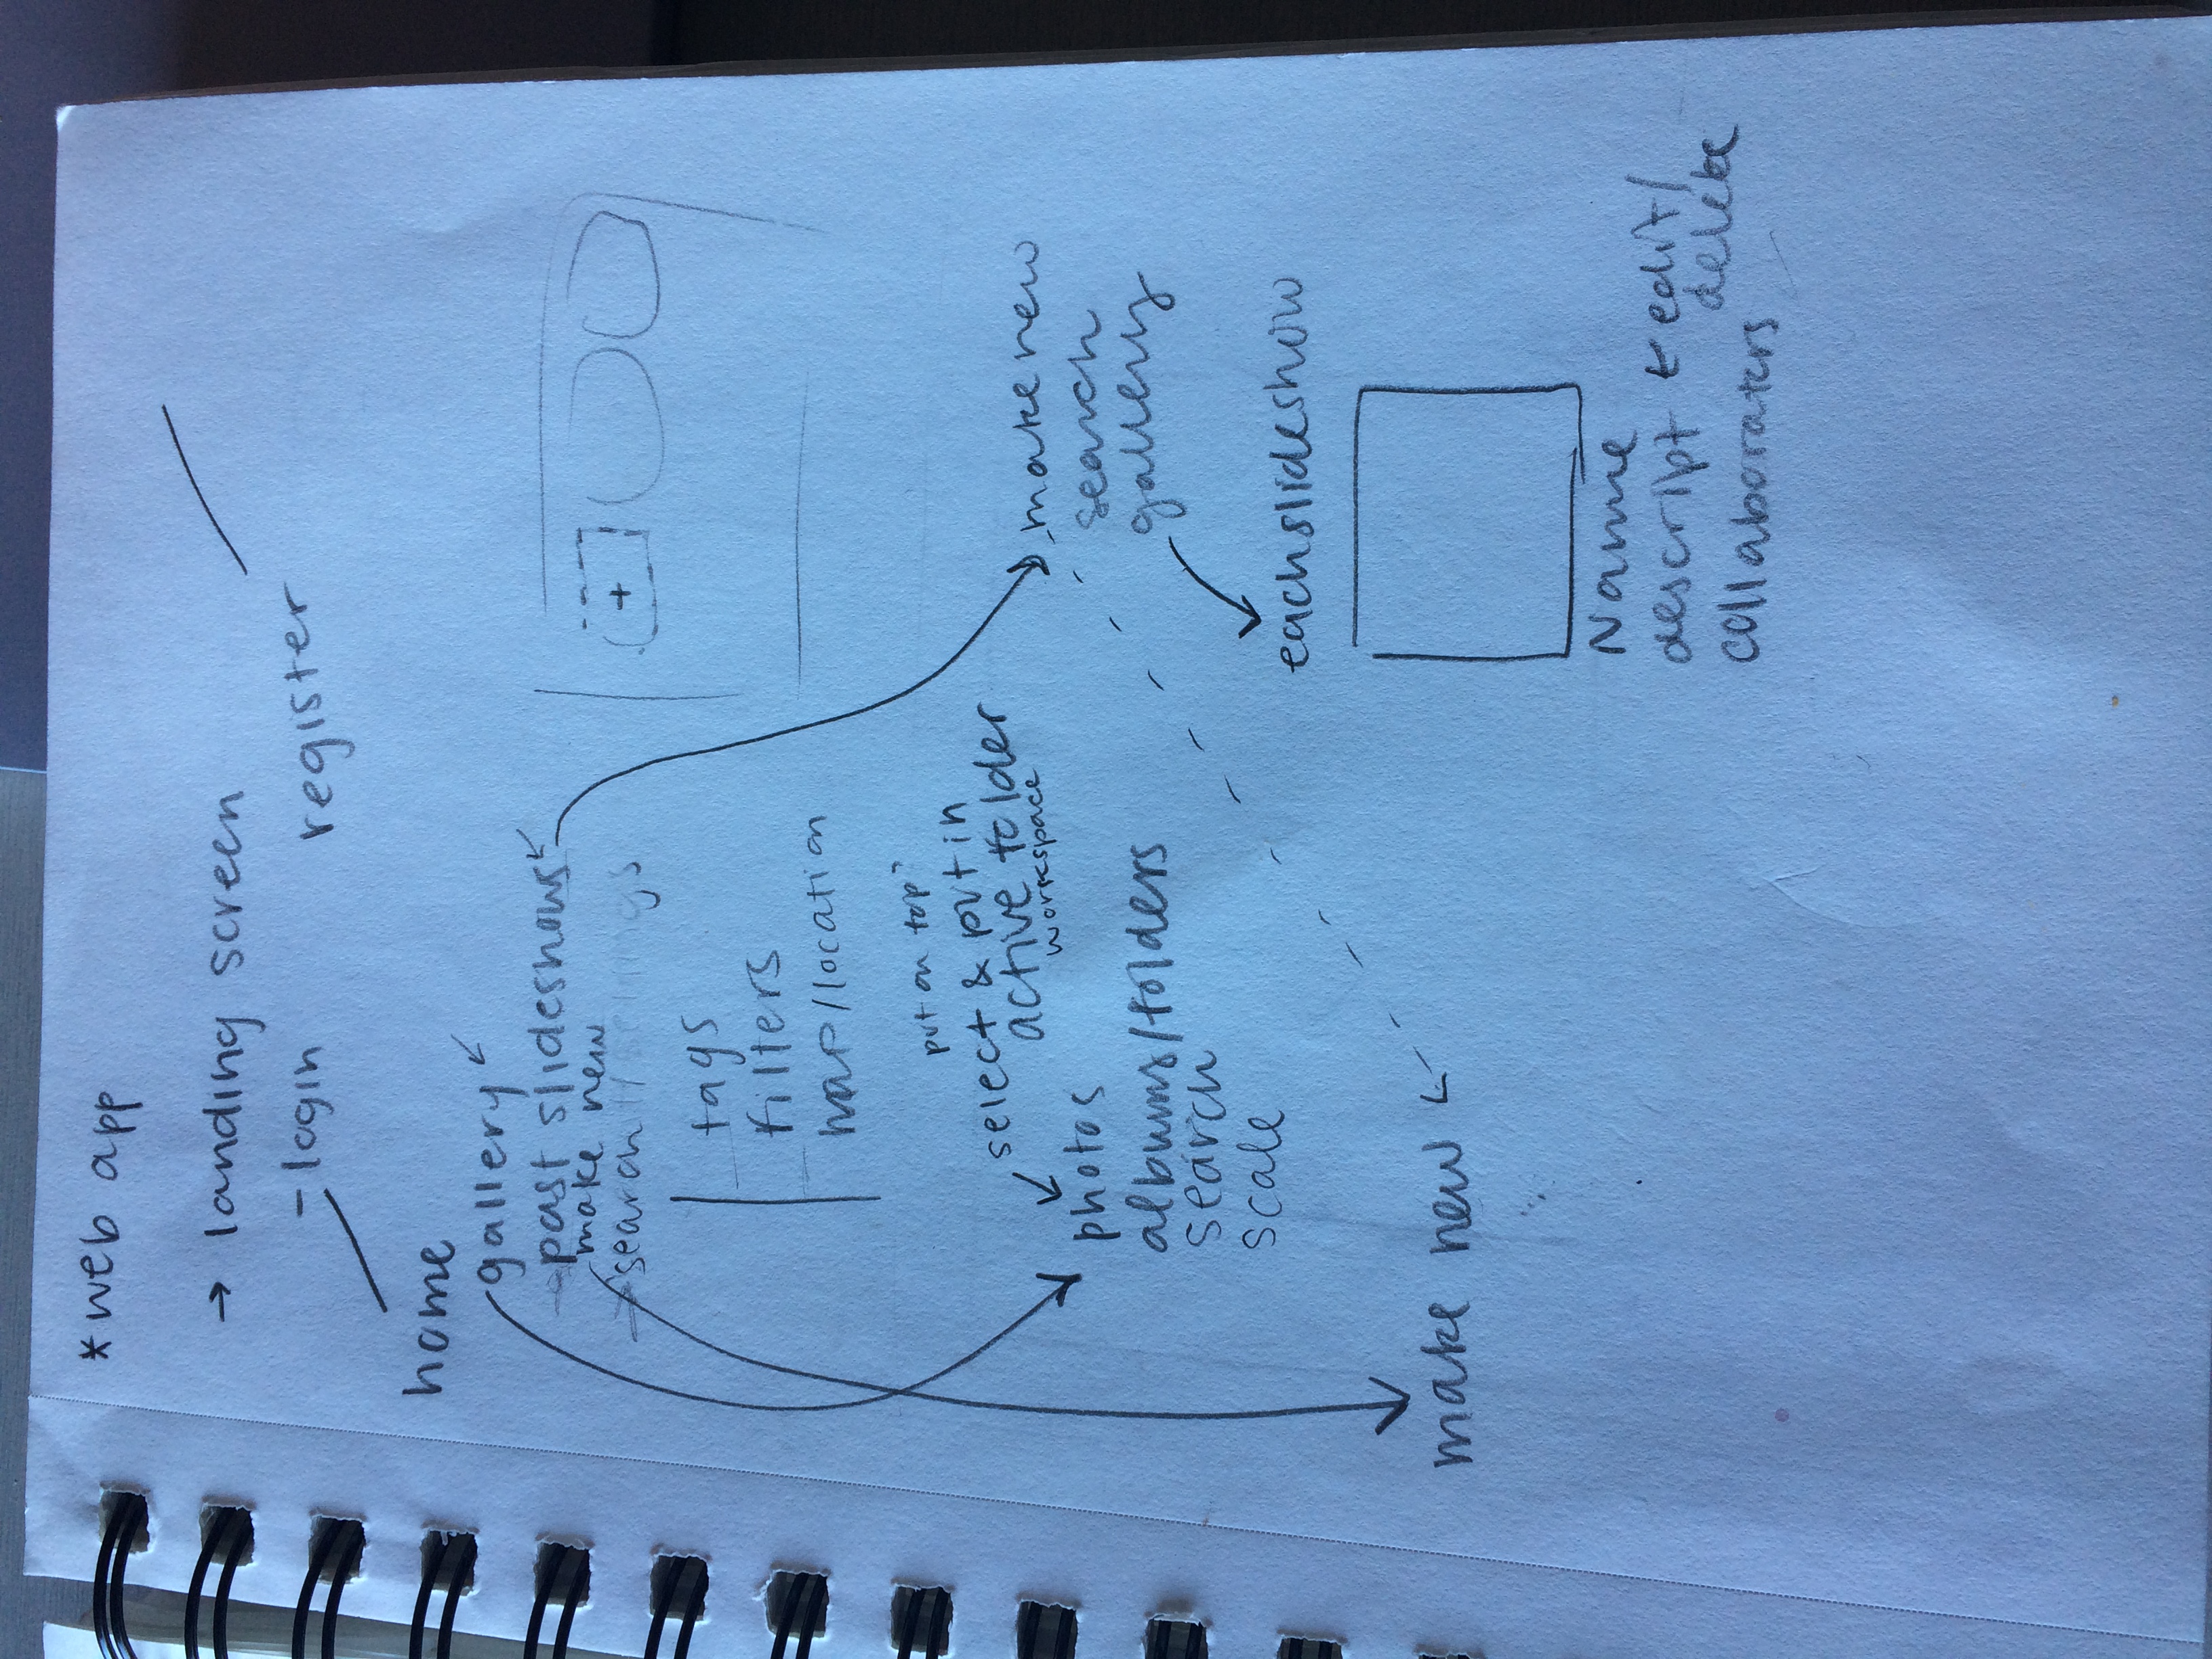 *web app
→ landing screen
- login register
home
gallery
past slideshows
make new
search
tags
filters
map/location
put on top?
select & put in
active folder
workspace
photos
albums/folders
search
scale
make new
search
gallery
each slideshow
make new
Name
descript ← edit/
delete
collaboraters